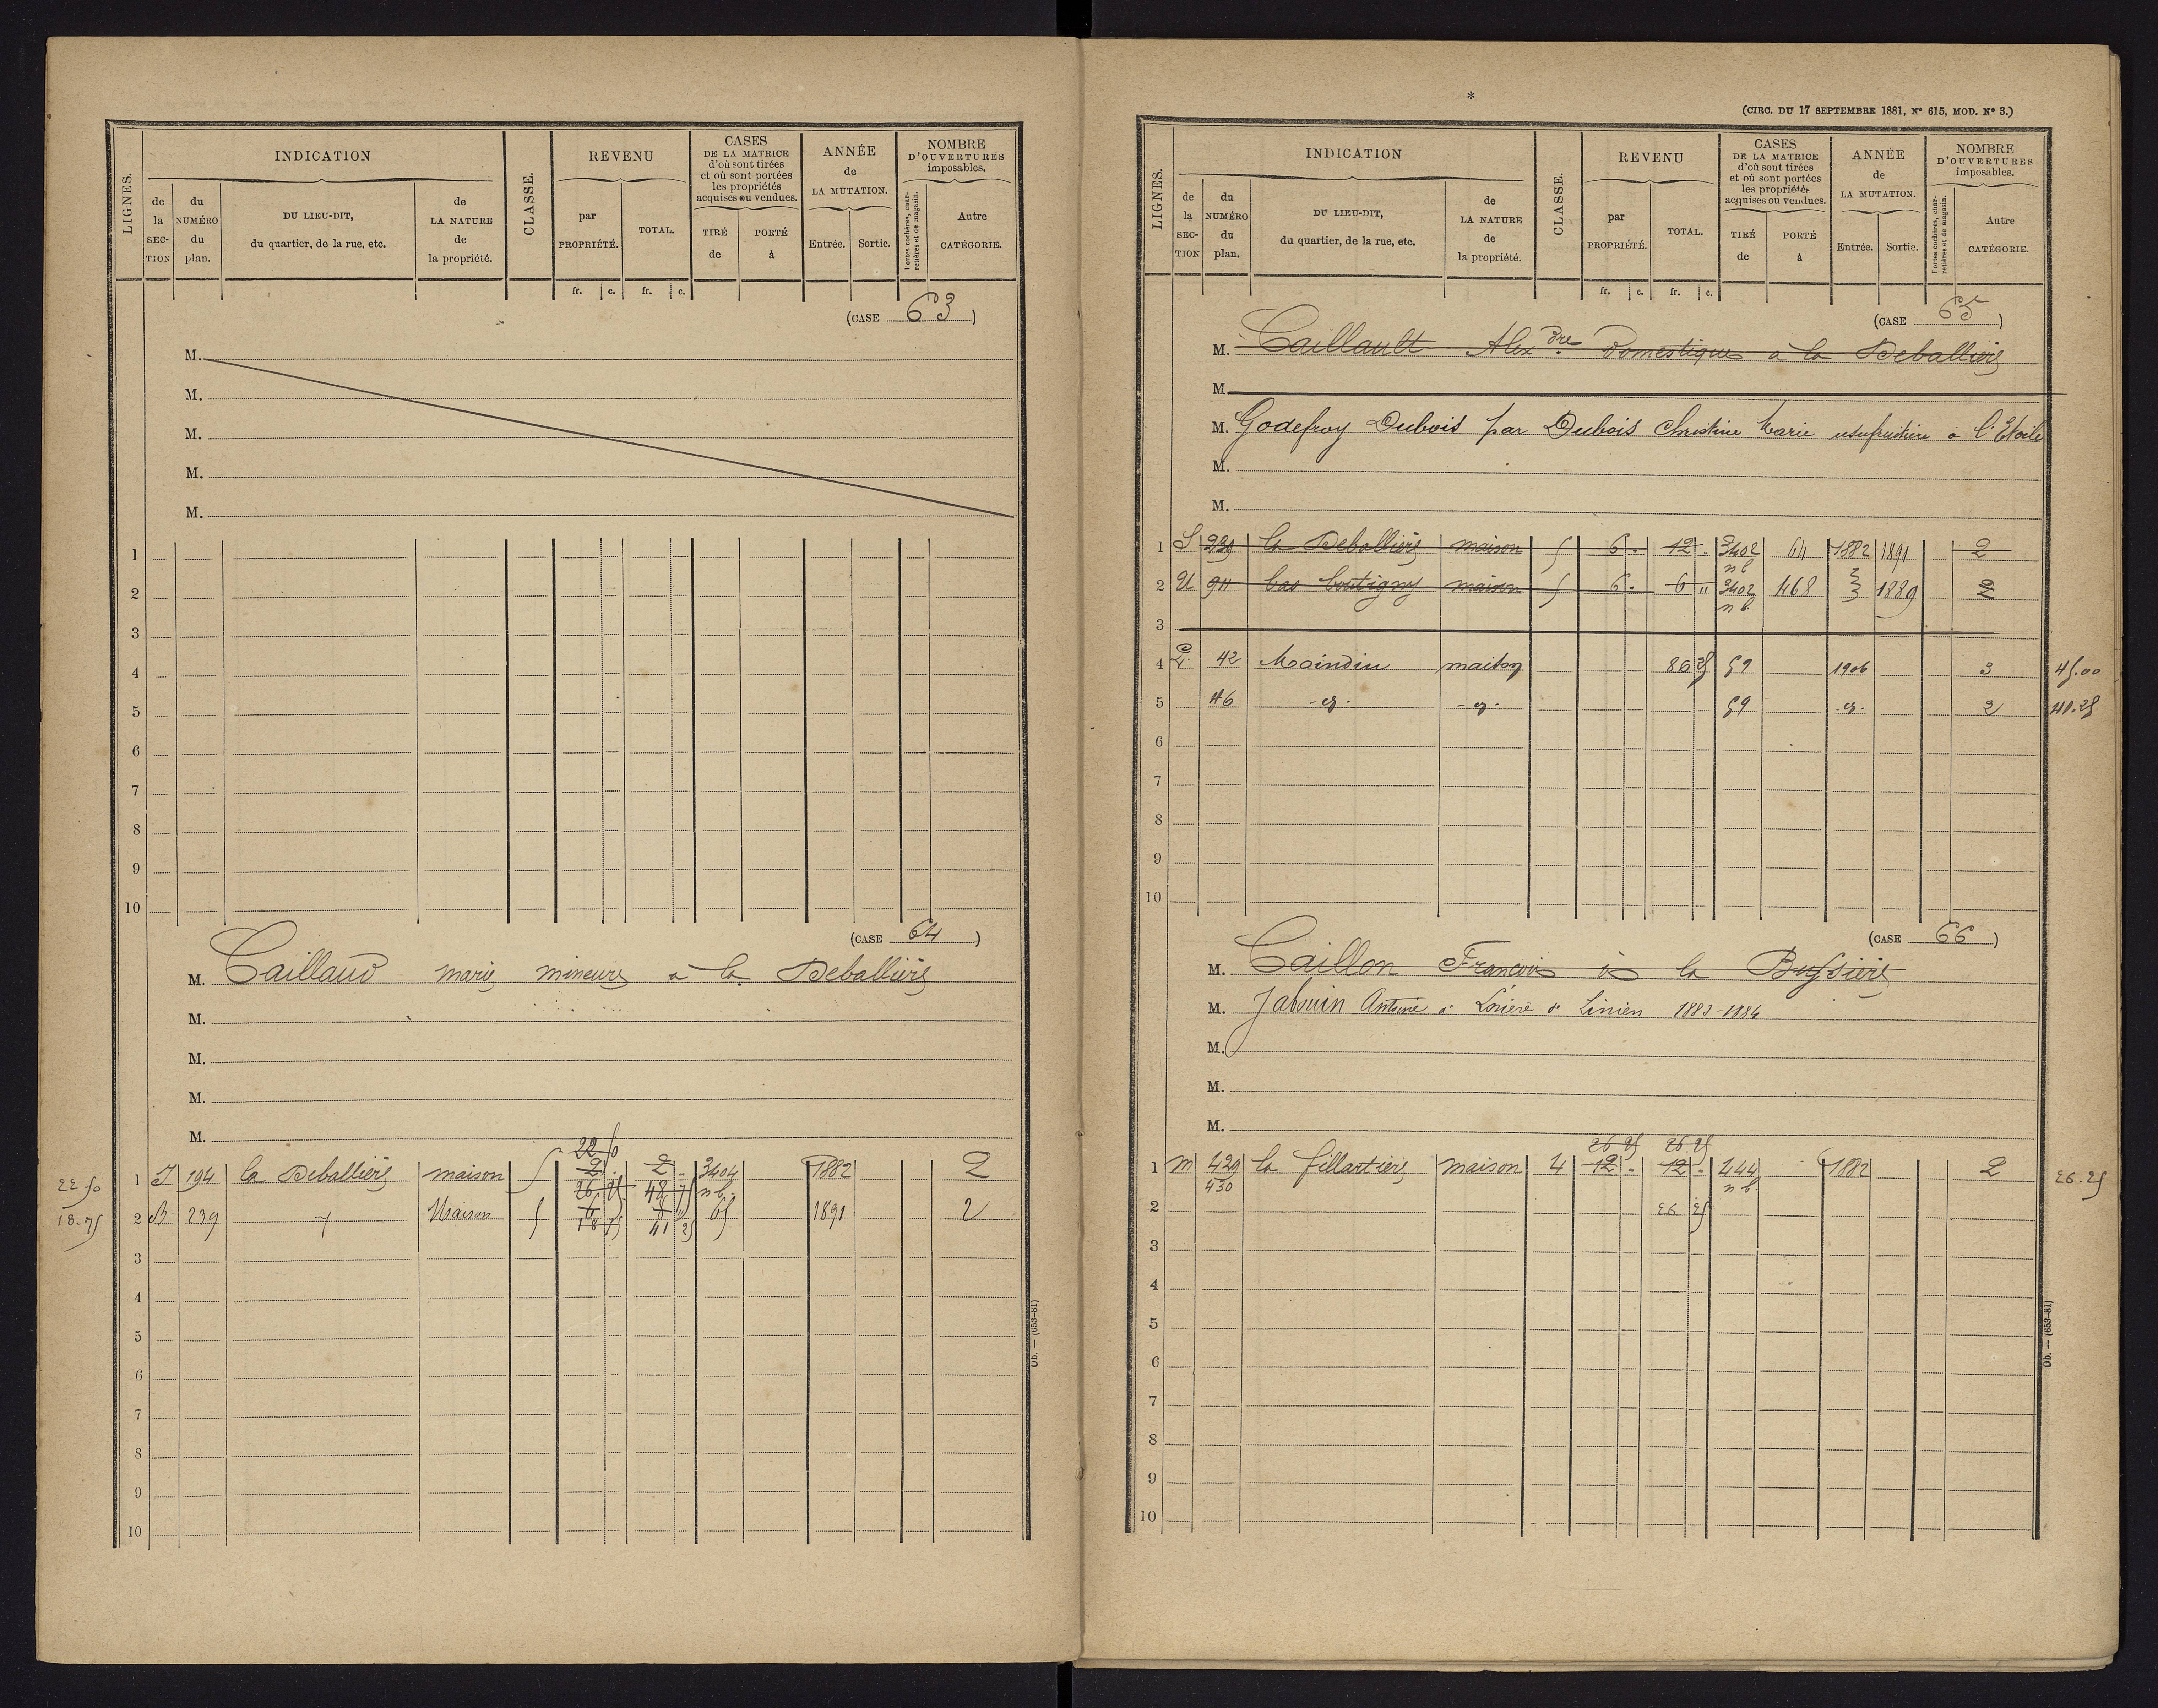 LIGNES.
INDICATION
de la SECTION
du NUMÉRO du plan.
DU LIEU-DIT, du quartier, de la rue, etc.
de LA NATURE de la propriété.
CLASSE.
REVENU
par PROPRIÉTÉ.
TOTAL.
CASES DE LA MATRICE d'où sont tirées et où sont portées les propriétés acquises ou vendues.
TIRÉ de
PORTÉ à
ANNÉE de LA MUTATION.
Entrée.
Sortie.
NOMBRE D'OUVERTURES imposables.
Portes cochères, charretières et de magasin.
Autre CATÉGORIE.
fr. c. fr. c.
(CASE 63)
M.
M.
M.
M.
M.
1
2
3
4
5
6
7
8
9
10
(CASE 64)
M. Caillaud marie mineure a la Deballière
M.
M.
M.
M.
22 50
1 194 la Deballière maison 5 2 . 2 . 3404 1882 2
22.50
26 25 48 75 n b.
2 239 Maison 5 6 65 1891 2
18.75
18 75 41 25
3
4
5
6
7
8
9
10
Ob. — (653-81)
*
(CIRC. DU 17 SEPTEMBRE 1881, N° 615, MOD. N° 3.)
LIGNES.
INDICATION
de la SECTION
du NUMÉRO du plan.
DU LIEU-DIT, du quartier, de la rue, etc.
de LA NATURE de la propriété.
CLASSE.
REVENU
par PROPRIÉTÉ.
TOTAL.
CASES DE LA MATRICE d'où sont tirées et où sont portées les propriétés acquises ou vendues.
TIRÉ de
PORTÉ à
ANNÉE de LA MUTATION.
Entrée.
Sortie.
NOMBRE D'OUVERTURES imposables.
Portes cochères, charretières et de magasin.
Autre CATÉGORIE.
fr. c. fr. c.
(CASE 65)
M. Caillault Alexdre Domestique a la Deballière
M.
M. Godefroy Dubois par Dubois Christine Marie usufruitière à l'Etoile
M.
M.
1 239 la Deballière maison 5 6 . 12 . 3402 64 1882 1891 2
n b
2 911 bas boutigny maison 5 6 . 6 " 3402 468 1889 2
n b
3
4 42 Moindin maison 86 25 59 1906 3 45.00
5 46 59 2 41.25
6
7
8
9
10
(CASE 66)
M. Caillon Francois à la Bussière
M. Jabouin Antoine Linien 1883-1884
M.
M.
M.
26 25 26 25
1 m 429 la fillastière maison 4 12 . 12 . 444 1882 2 26.25
430 n b.
2 26 25
3
4
5
6
7
8
9
10
Ob. — (653-81)